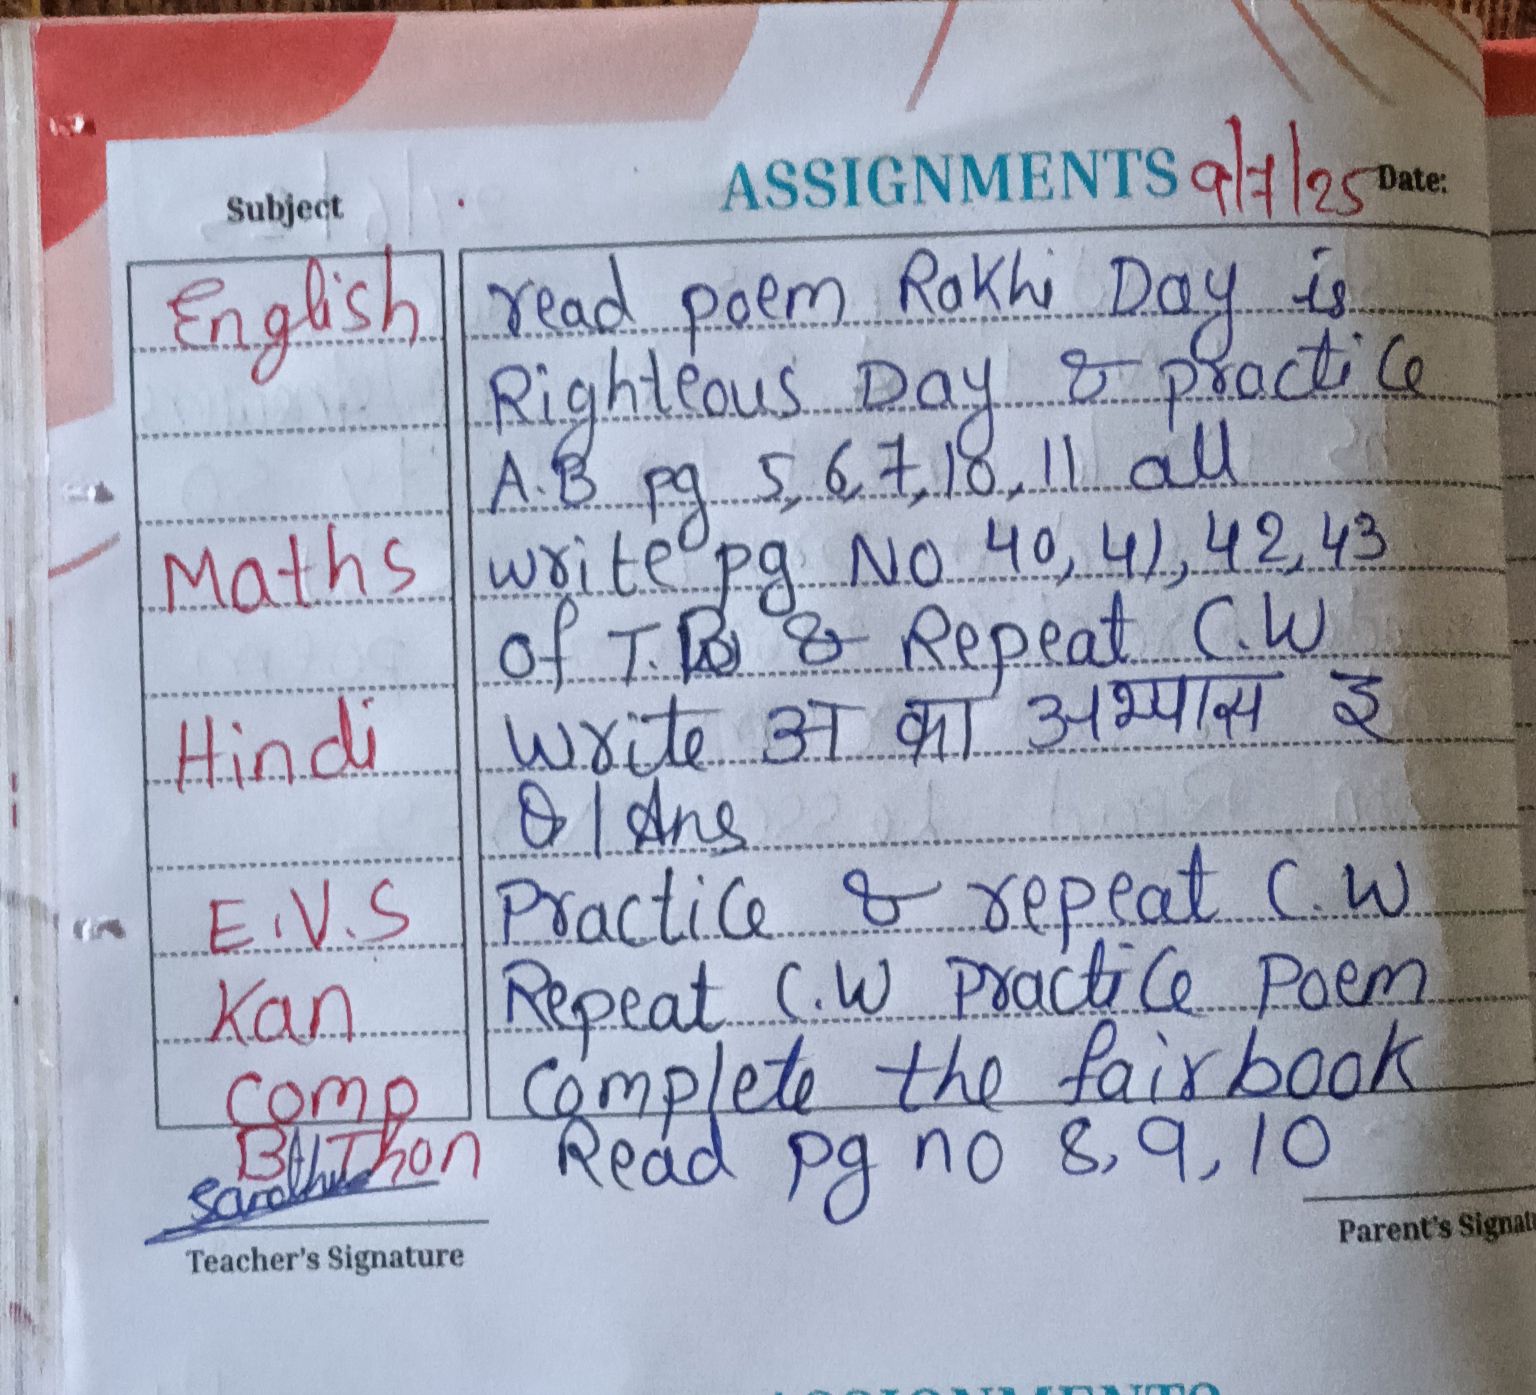 ASSIGNMENTS 9/7/25 Date:
Subject
English read poem Rakhi Day is
Righteous Day & practice
A.B pg 5, 6, 7, 10, 11 all
Maths write pg No 40, 41, 42, 43
of T.B & Repeat C.W
Hindi Write अ का अभ्यास इ
Q/Ans
E.V.S Practice & repeat C.W
Kan Repeat C.W Practice Poem
Comp Complete the fairbook
Read pg no 8, 9, 10
Teacher's Signature
Parent's